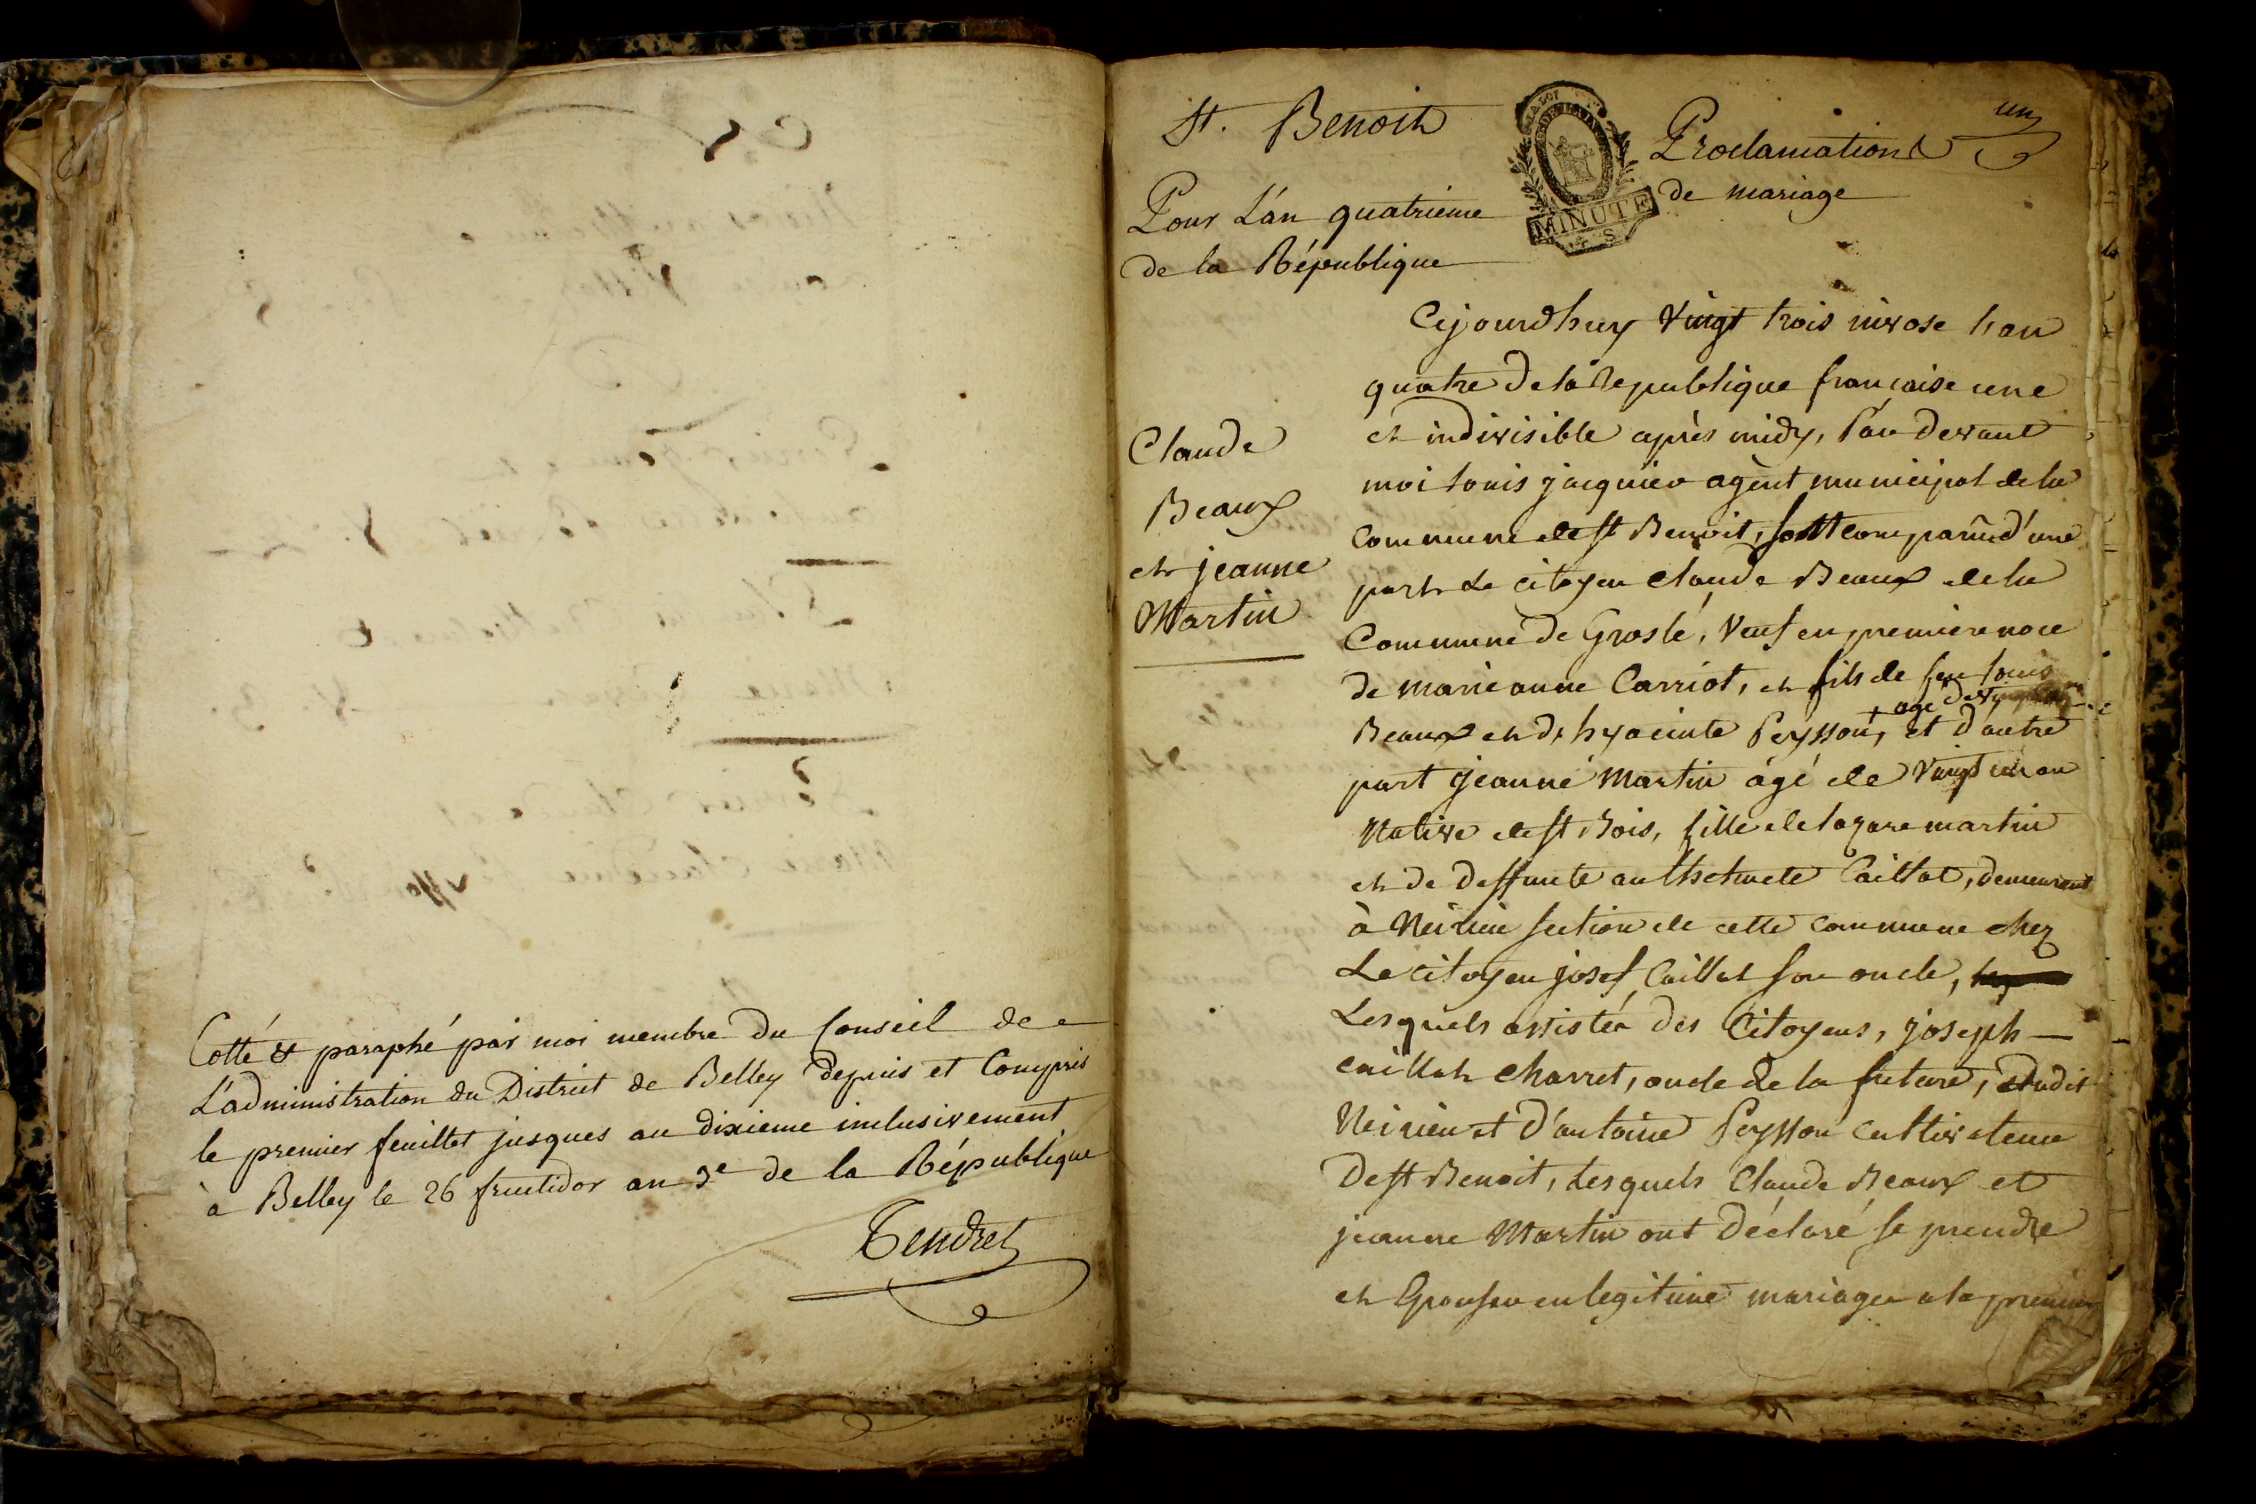 Cotté & paraphé par moi membre du Conseil de
L'administration du District de Belley depuis et Compris
le premier feuillet jusques au dixieme inclusivement
à Belley le 26 fructidor an 3e de la République
Tendret
St. Benoit
Pour L'an quatrieme
de la République
MINUTE
Proclamations
de mariage
un
Claude
Beaux
et jeanne
Martin
Cejourdhuy Vingt trois nivose l'an
quatre de la Republique française une
et indivisible après midy, Par devant
moi Louis jacquier agent municipal de la
Commune de st Benoit, sont comparu d'une
part Le citoyen Claude Beaux de la
Commune de Groslé, Veuf en premiere noce
de marie anne Carriot, et fils de feu Louis
+ age de
Beaux et de hyacinte Peysson, et d'autre
part jeanne Martin âgé de Vingt un an
Native de st Bois, fille de Lazare martin
et de deffunte Caillat, demeurant
à section de cette commune chez
Le citoyen josef Caillat son oncle,
Lesquels assistés des Citoyens, joseph
caillat charret, oncle de la future, dudit
et d'antoine Peysson cultivateur
De st Benoit, Lesquels Claude Beaux et
jeanne Martin ont déclaré se prendre
et Epouser en legitime mariage a la premiere